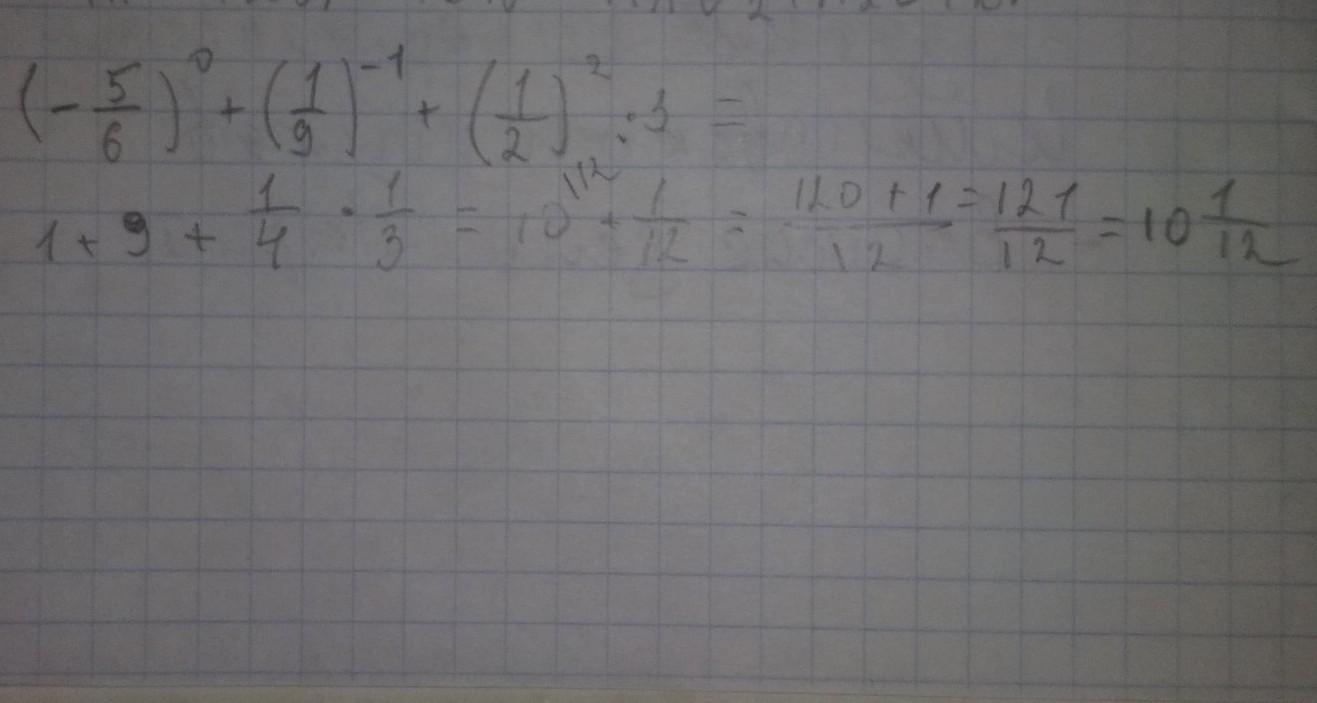 (-5/6)^0 + (1/9)^-1 + (1/2)^2 : 3 =
1 + 9 + 1/4 · 1/3 = 10 + 1/12 = 120 + 1/12 = 121/12 = 10 1/12